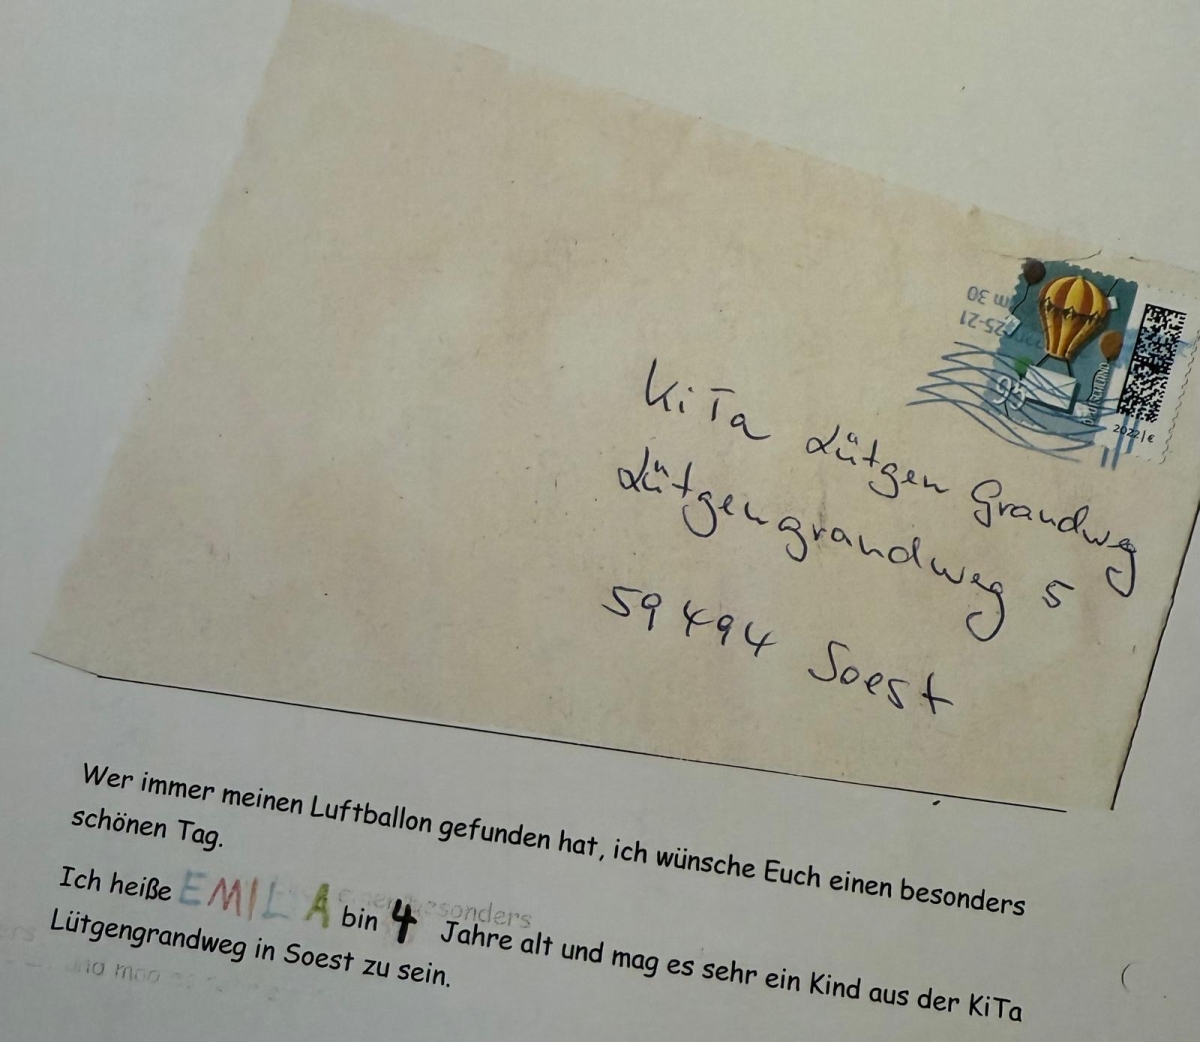 m 30
25-21
95
DEUTSCHLAND
2022 | €
KiTa Lütgen Grandweg
Lütgengrandweg 5
59494 Soest
Wer immer meinen Luftballon gefunden hat, ich wünsche Euch einen besonders
schönen Tag.
Ich heiße EMILA bin 4 Jahre alt und mag es sehr ein Kind aus der KiTa
Lütgengrandweg in Soest zu sein.
einen besonders
und mag es